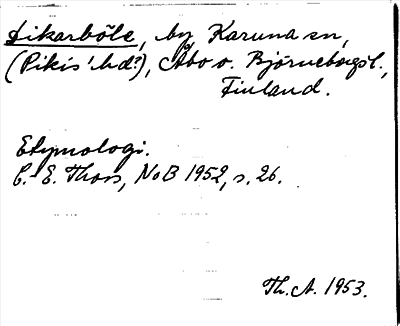 Sikarböle, by Karuna sn,
(Pikis' hd?), Åbo o. Björneborgs l.,
Finland.
Etymologi.
C.-E. Thors, NoB 1952, s. 26.
Th. A. 1953.